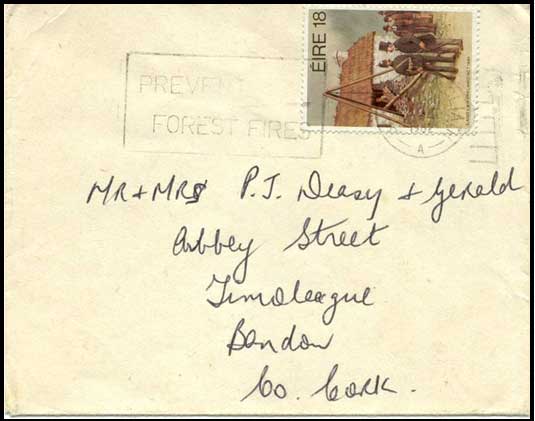 ÉIRE 18
PREVENT
FOREST FIRES
A
MR + MRS P.J. Deasy & Gerald
Abbey Street
Timoleague
Bandon
Co. Cork.